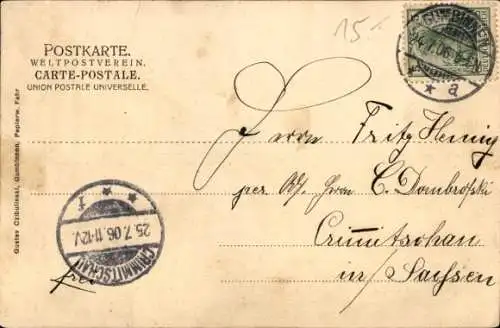 15.-
POSTKARTE.
WELTPOSTVEREIN.
CARTE-POSTALE.
UNION POSTALE UNIVERSELLE.
GUMBINNEN
24.7.06.
* a
Herrn Fritz Hennig
per Ad. Herrn C. Dombrofski
Crimmitschau
in Sachsen
frei
* f *
25.7.06.11-12V.
CRIMMITSCHAU
Gustav Czibulinski, Gumbinnen, Papierw. Fabr